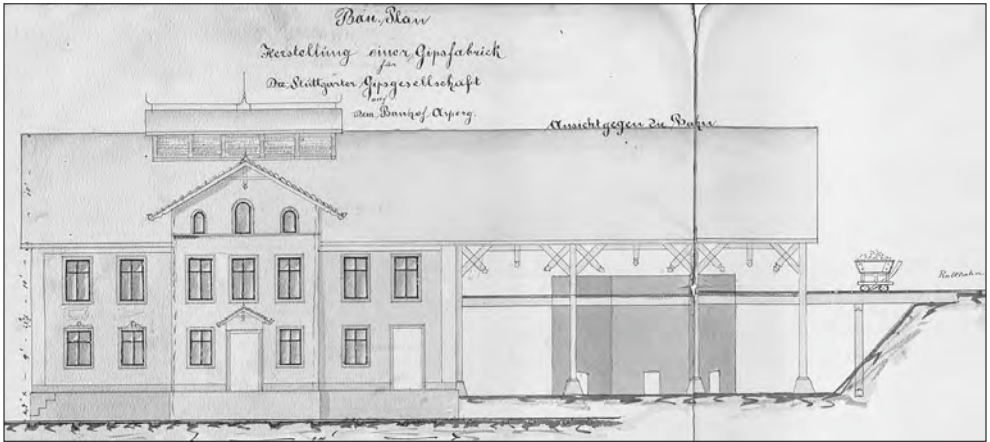 Bau-Plan
Herstellung einer Gipsfabrick
für
Die Stuttgarter Gipsgesellschaft
auf
dem Banhof Asperg.
Ansicht gegen die Bahn
Rollbahn